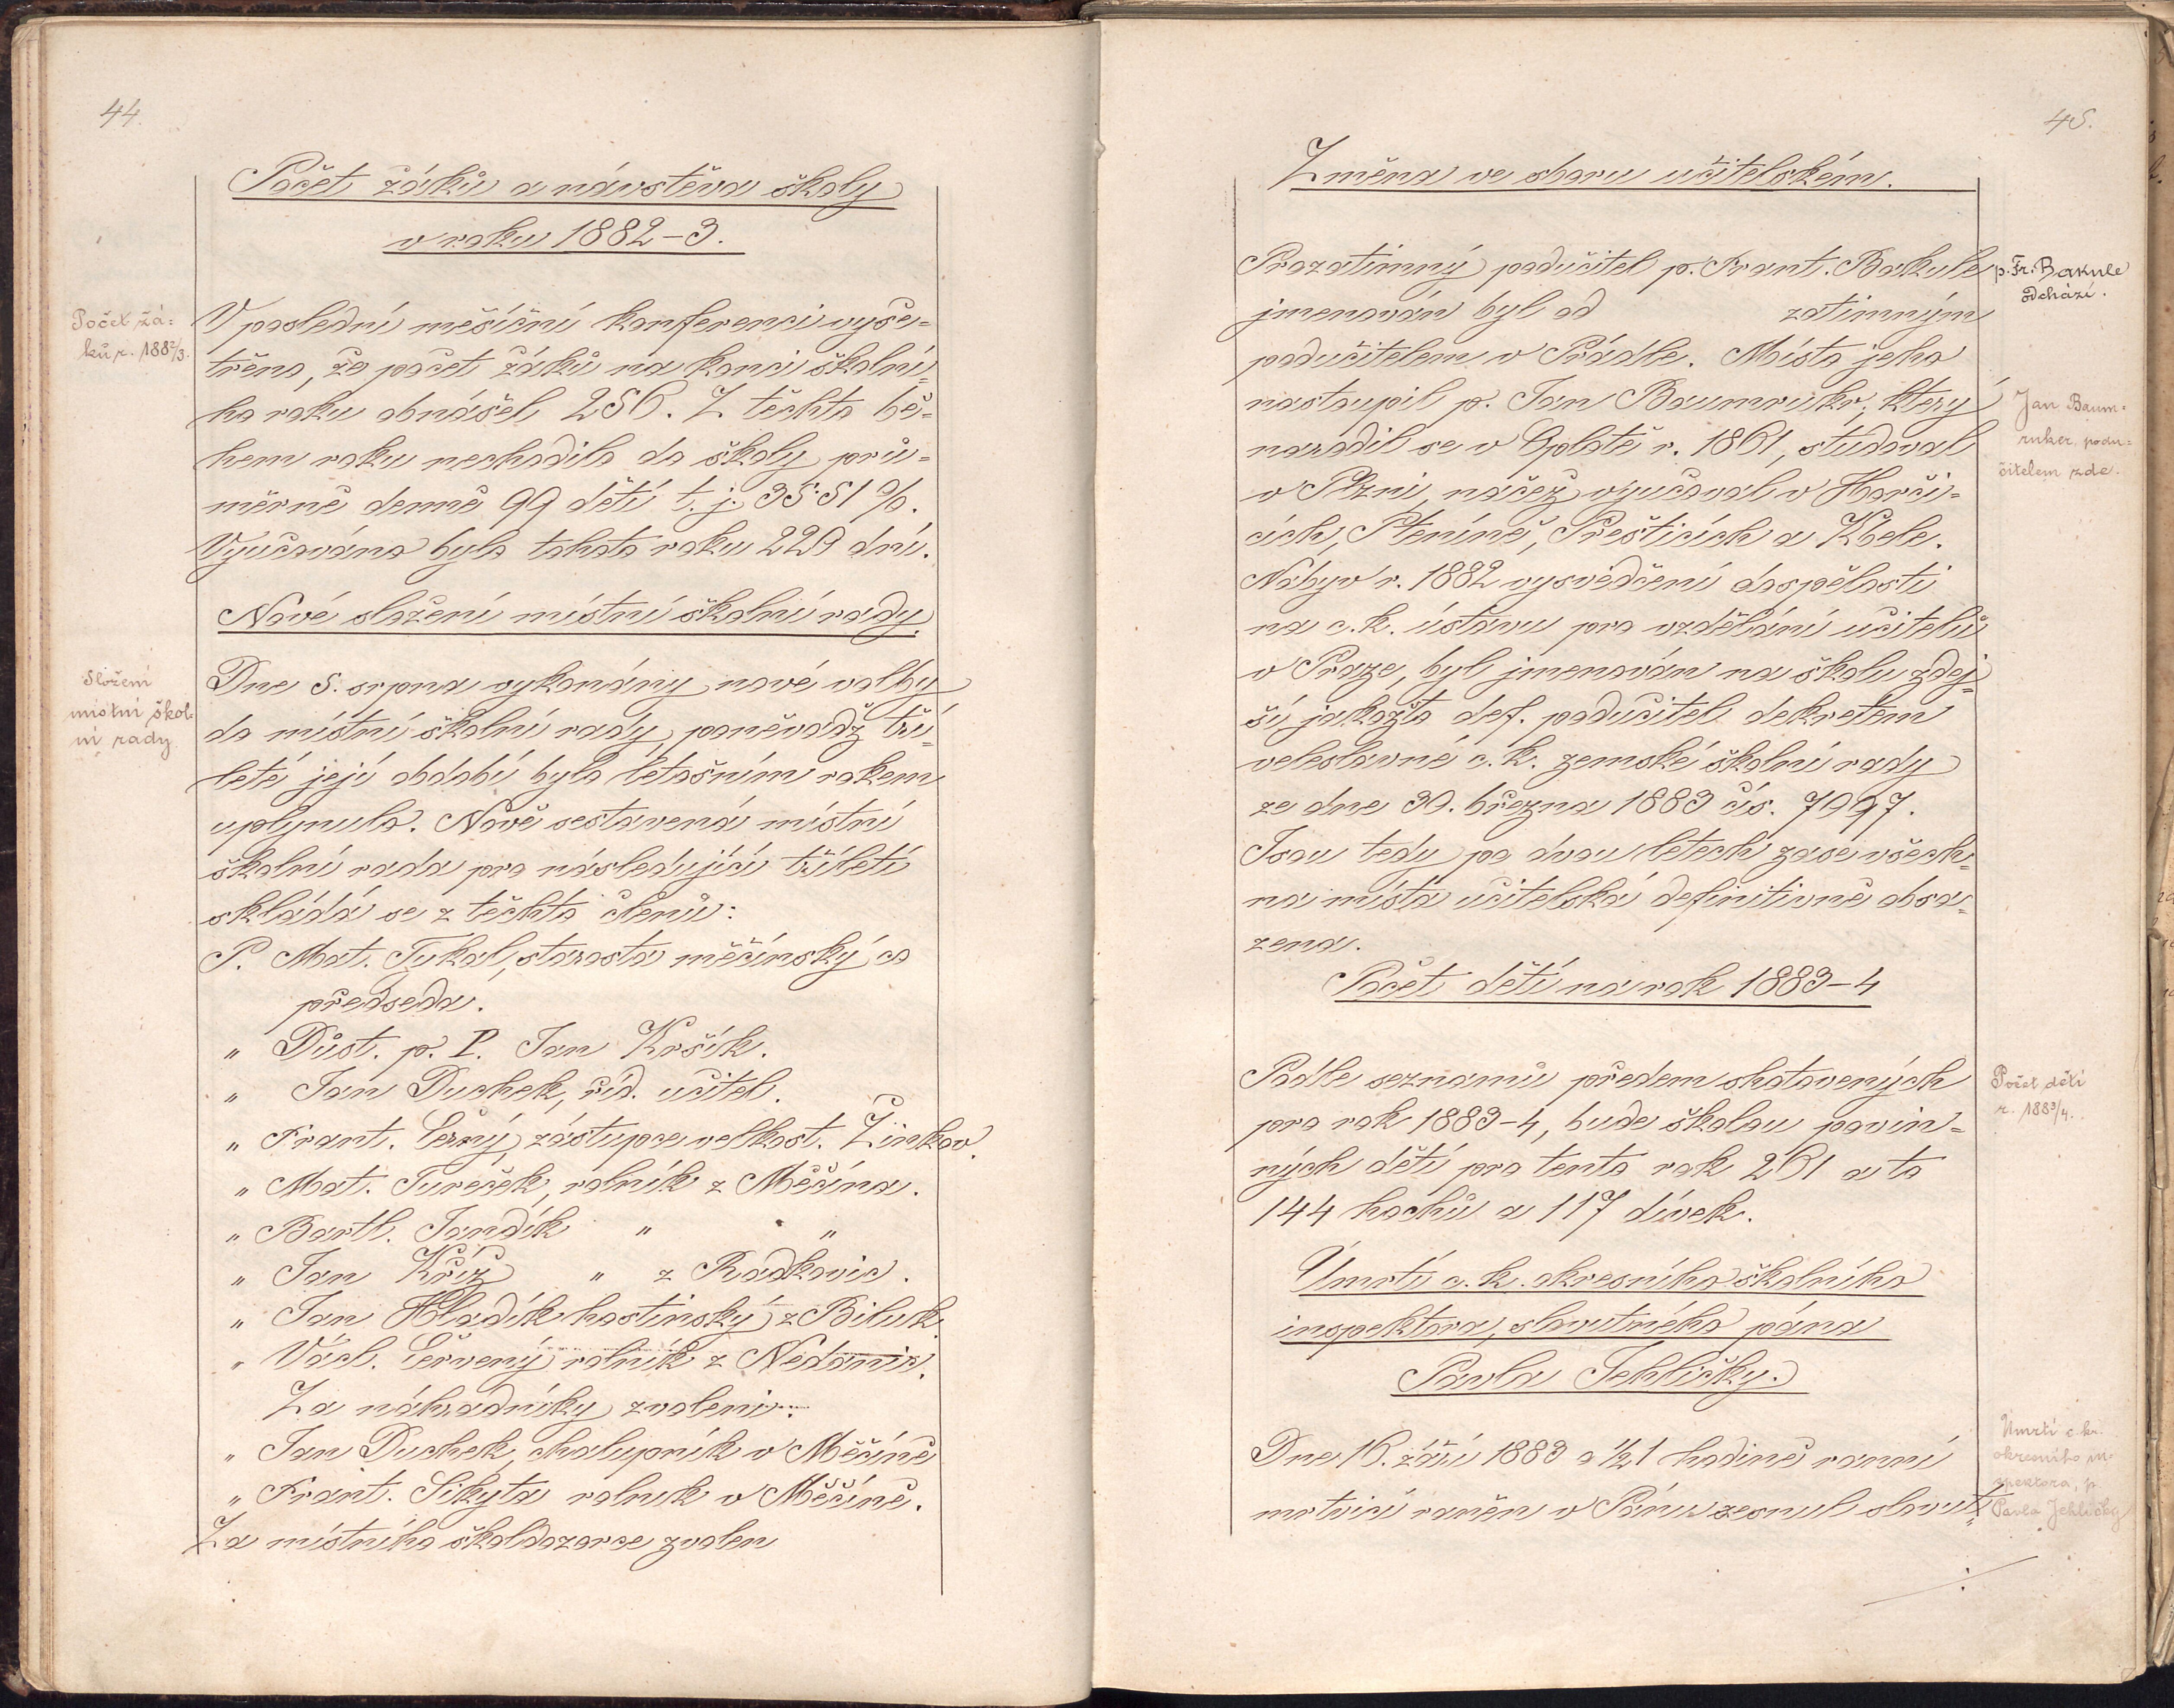 44.
Počet žáků a návštěva školy
v roku 1882-3.
Počet žá=
ků r. 1882/3.
V poslední měsíční konferenci vyše=
třeno, že počet žáků na konci školní=
ho roku obnášel 256. Z těchto bě=
hem roku nechodilo do školy prů=
měrně denně 99 dětí t. j. 35·51 %.
Vyučováno bylo tohoto roku 229 dní.
Nové složení místní školní rady.
Složení
místní škol=
ní rady.
Dne 5. srpna vykonány nové volby
do místní školní rady, poněvadž tří=
leté její období bylo letošním rokem
uplynulo. Nově sestavená místní
školní rada pro následující tříletí
skládá se z těchto členů:
P. Mat. Tykal, starosta měčínský co
předseda.
„ Důst. p. P. Jan Kršík.
„ Jan Duchek, říd. učitel.
„ Frant. Černý, zástupce velkost. Žinkov.
„ Mat. Tureček, rolník z Měčína.
„ Bartl. Jandík „ „
„ Jan Kříž „ z Radkovic.
„ Jan Hladík hostinský z Biluk
„ Václ. Červený rolník z Nedanic.
Za náhradníky zvoleni:
„ Jan Duchek, chalupník v Měčíně
„ Frant. Sikyta rolník v Měčíně.
Za místního školdozorce zvolen
45.
Změna ve sboru učitelském.
Prozatimný podučitel p. Frant. Bakule
p. Fr. Bakule
odchází.
jmenován byl od zatimným
podučitelem v Prádle. Místo jeho
nastoupil p. Jan Baumrukr, který
Jan Baum=
ruker, podu=
čitelem zde.
narodil se v Oplotě r. 1861, studoval
v Plzni, načež vyučoval v Horči=
cích, Pteníně, Přešticích a Kbele.
Nabyv r. 1882 vysvědčení dospělosti
na c. k. ústavu pro vzdělání učitelů
v Praze, byl jmenován na školu zdej=
ší jakožto def. podučitel dekretem
veleslavné c. k. zemské školní rady
ze dne 30. března 1883 čís. 7097.
Jsou tedy po dvou letech zase všech=
na místa učitelská definitivně obsa=
zena.
Počet dětí na rok 1883-4
Podle seznamů předem shotovených
Počet dětí
r. 1883/4.
pro rok 1883-4, bude školou povin=
ných dětí pro tento rok 261 a to
144 hochů a 117 dívek.
Úmrtí c. k. okresního školního
inspektora, slovutného pána
Pavla Jehličky.
Úmrtí c. kr.
okresního in=
spektora, p.
Pavla Jehličky
Dne 16. září 1883 o ½1 hodině ranní
mrtvicí raněn v Pánu zesnul slovut=